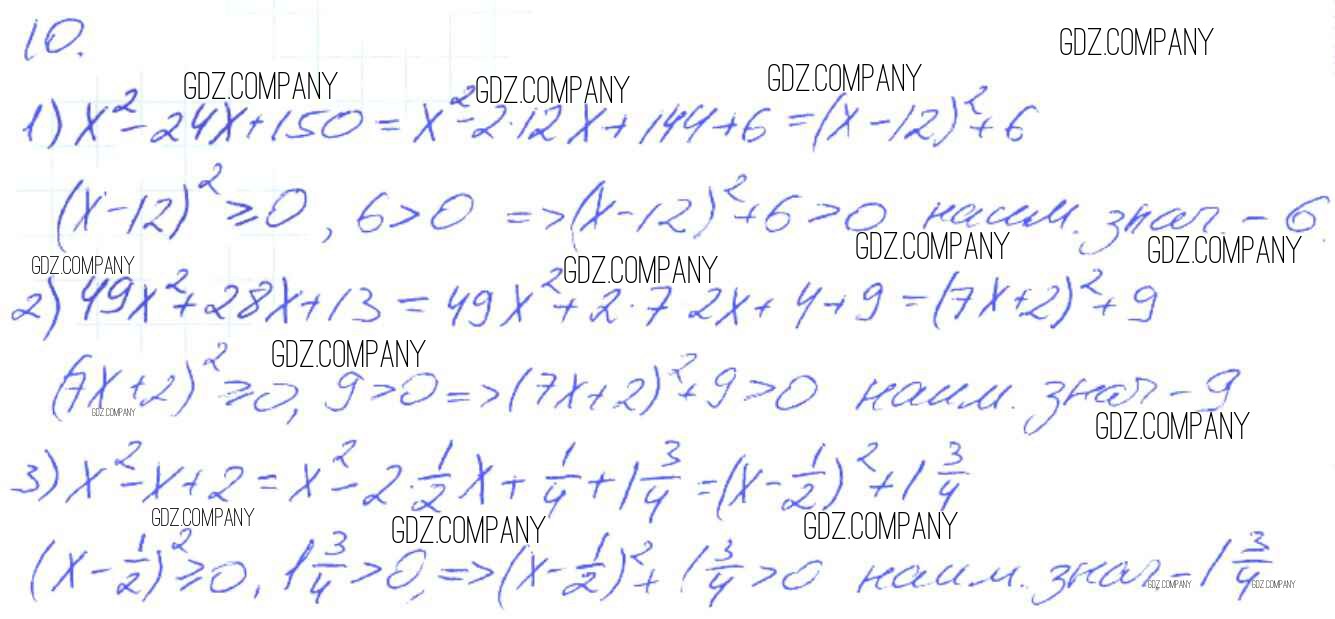 10.
GDZ.COMPANY
GDZ.COMPANY GDZ.COMPANY GDZ.COMPANY
1) x² - 24x + 150 = x² - 2·12x + 144 + 6 = (x - 12)² + 6
(x - 12)² ≥ 0, 6 > 0 => (x - 12)² + 6 > 0 наим. знач. - 6.
GDZ.COMPANY GDZ.COMPANY GDZ.COMPANY GDZ.COMPANY
2) 49x² + 28x + 13 = 49x² + 2·7 2x + 4 + 9 = (7x + 2)² + 9
GDZ.COMPANY
(7x + 2)² ≥ 0, 9 > 0 => (7x + 2)² + 9 > 0 наим. знач - 9
GDZ.COMPANY GDZ.COMPANY
3) x² - x + 2 = x² - 2·1/2 x + 1/4 + 1 3/4 = (x - 1/2)² + 1 3/4
GDZ.COMPANY GDZ.COMPANY GDZ.COMPANY
(x - 1/2)² ≥ 0, 1 3/4 > 0, => (x - 1/2)² + 1 3/4 > 0 наим. знач. - 1 3/4
GDZ.COMPANY GDZ.COMPANY